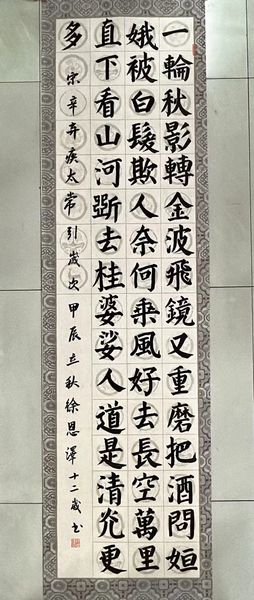 一輪秋影轉金波飛鏡又重磨把酒問姮
娥被白髮欺人奈何乘風好去長空萬里
直下看山河斫去桂婆娑人道是清光更
多 宋辛弃疾太常引歲次甲辰立秋徐恩澤十二歲书